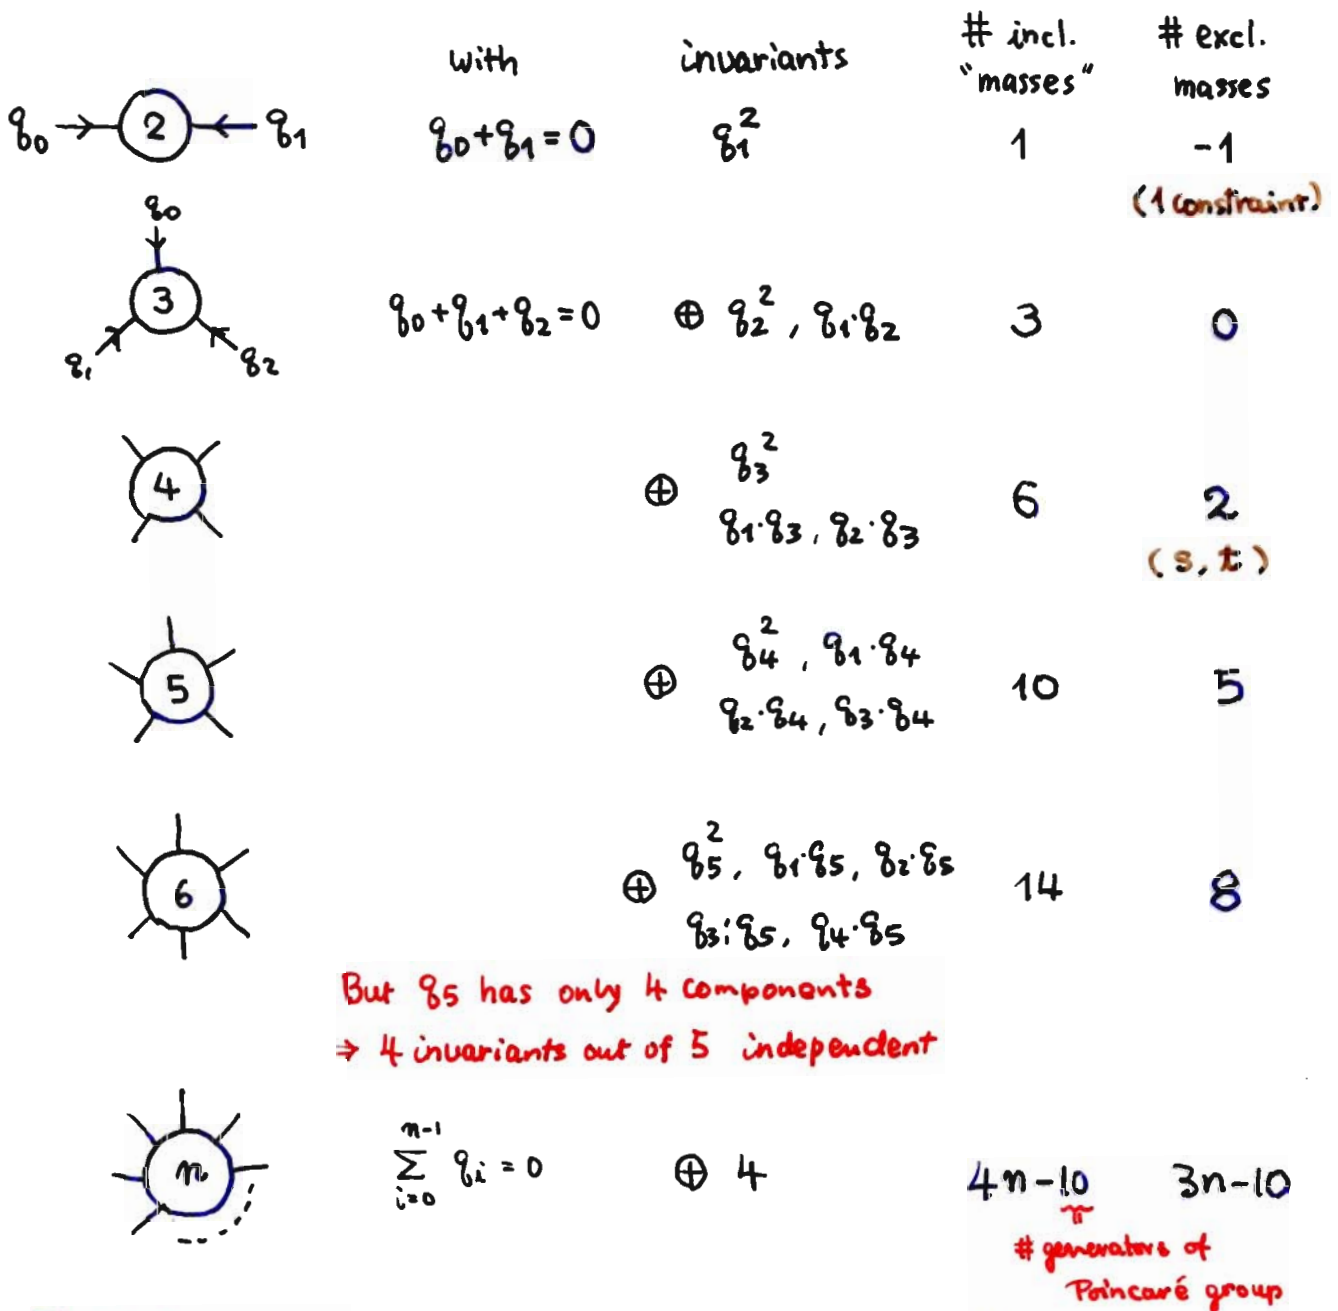 with invariants # incl. "masses" # excl. masses
q₀ 2 q₁ q₀+q₁=0 q₁² 1 -1
(1 constraint)
q₀
3 q₀+q₁+q₂=0 ⊕ q₂², q₁·q₂ 3 0
q₁ q₂
4 ⊕ q₃² 6 2
q₁·q₃, q₂·q₃
(s, t)
5 ⊕ q₄², q₁·q₄ 10 5
q₂·q₄, q₃·q₄
6 ⊕ q₅², q₁·q₅, q₂·q₅ 14 8
q₃·q₅, q₄·q₅
But q₅ has only 4 components
⇒ 4 invariants out of 5 independent
n ∑_{i=0}^{n-1} qᵢ = 0 ⊕ 4 4n-10 3n-10
# generators of
Poincaré group